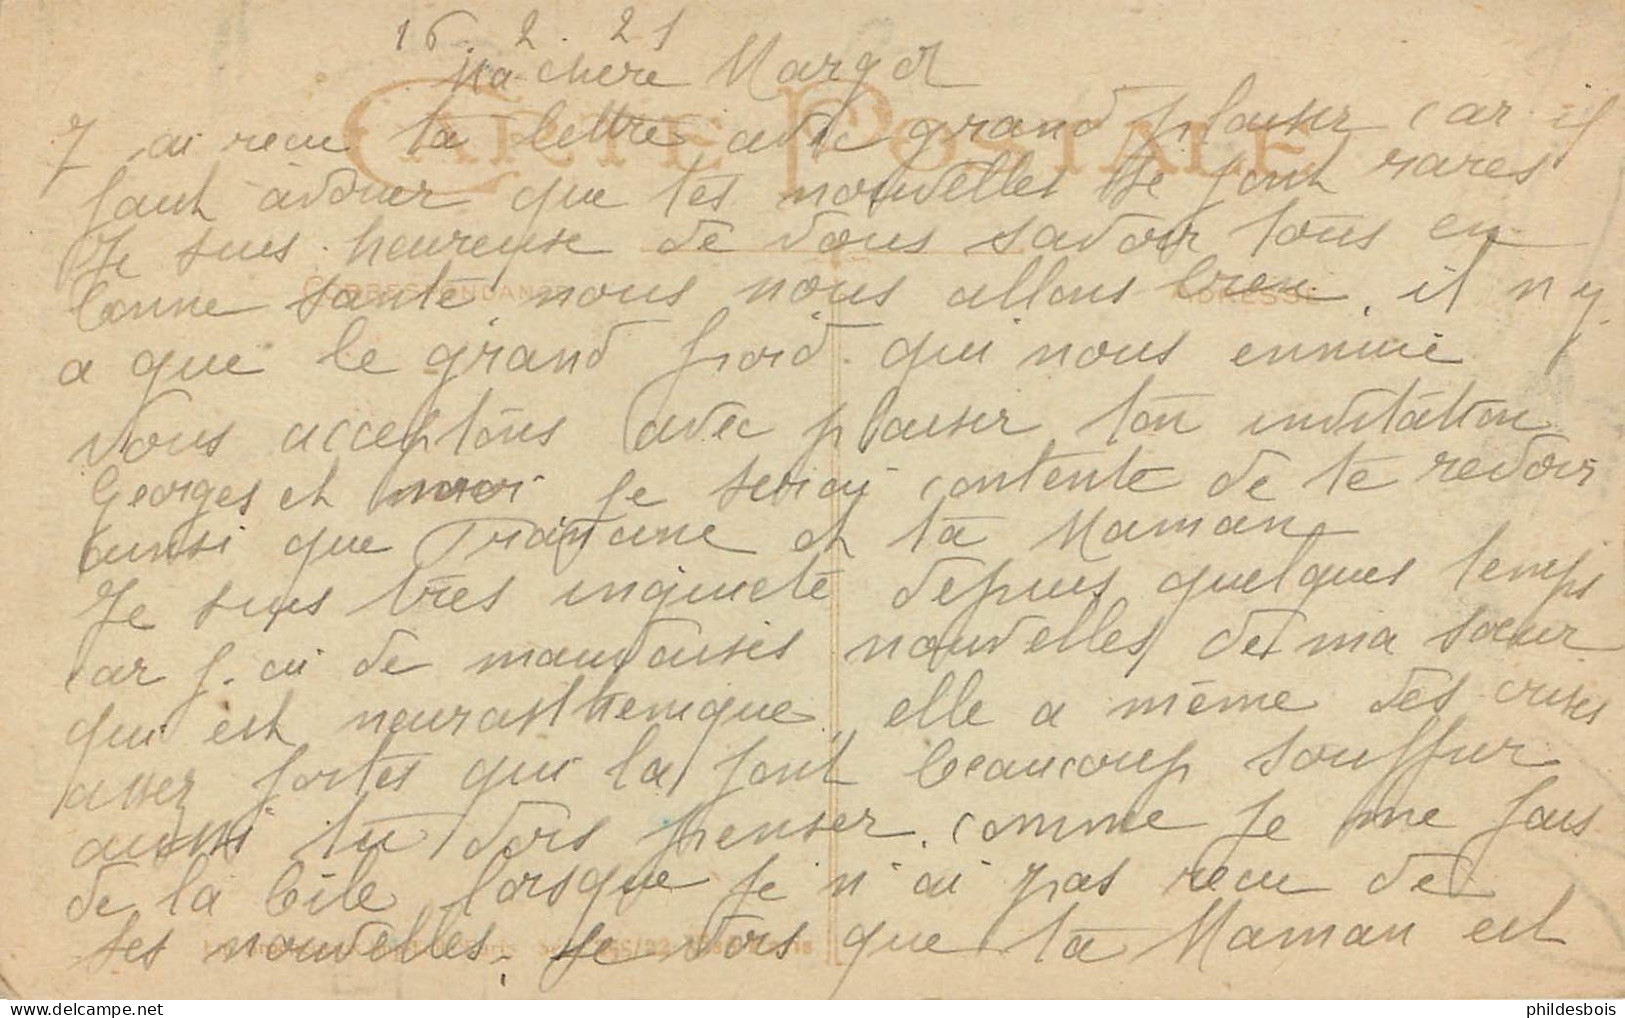 16.2.21
Ma chère Margot
J ai recu ta lettre avec grand plaisir car il
faut avouer que tes nouvelles se font rares
Je suis heureuse de vous savoir tous en
bonne santé nous nous allons bien, il n y
a que le grand froid qui nous ennuie
Nous acceptons avec plaisir ton invitation
Georges et moi je serai contente de te revoir
ainsi que et ta Maman
Je suis très inquiete depuis quelques temps
car j. ai de mauvaises nouvelles de ma soeur
qui est neurasthenique, elle a même des crises
assez fortes qui la font beaucoup souffrir
aussi tu dois penser comme je me fais
de la bile lorsque je n'ai pas recu de
ses nouvelles. Je vois que ta Maman est
CARTE POSTALE
CORRESPONDANCE
ADRESSE
phildesbois